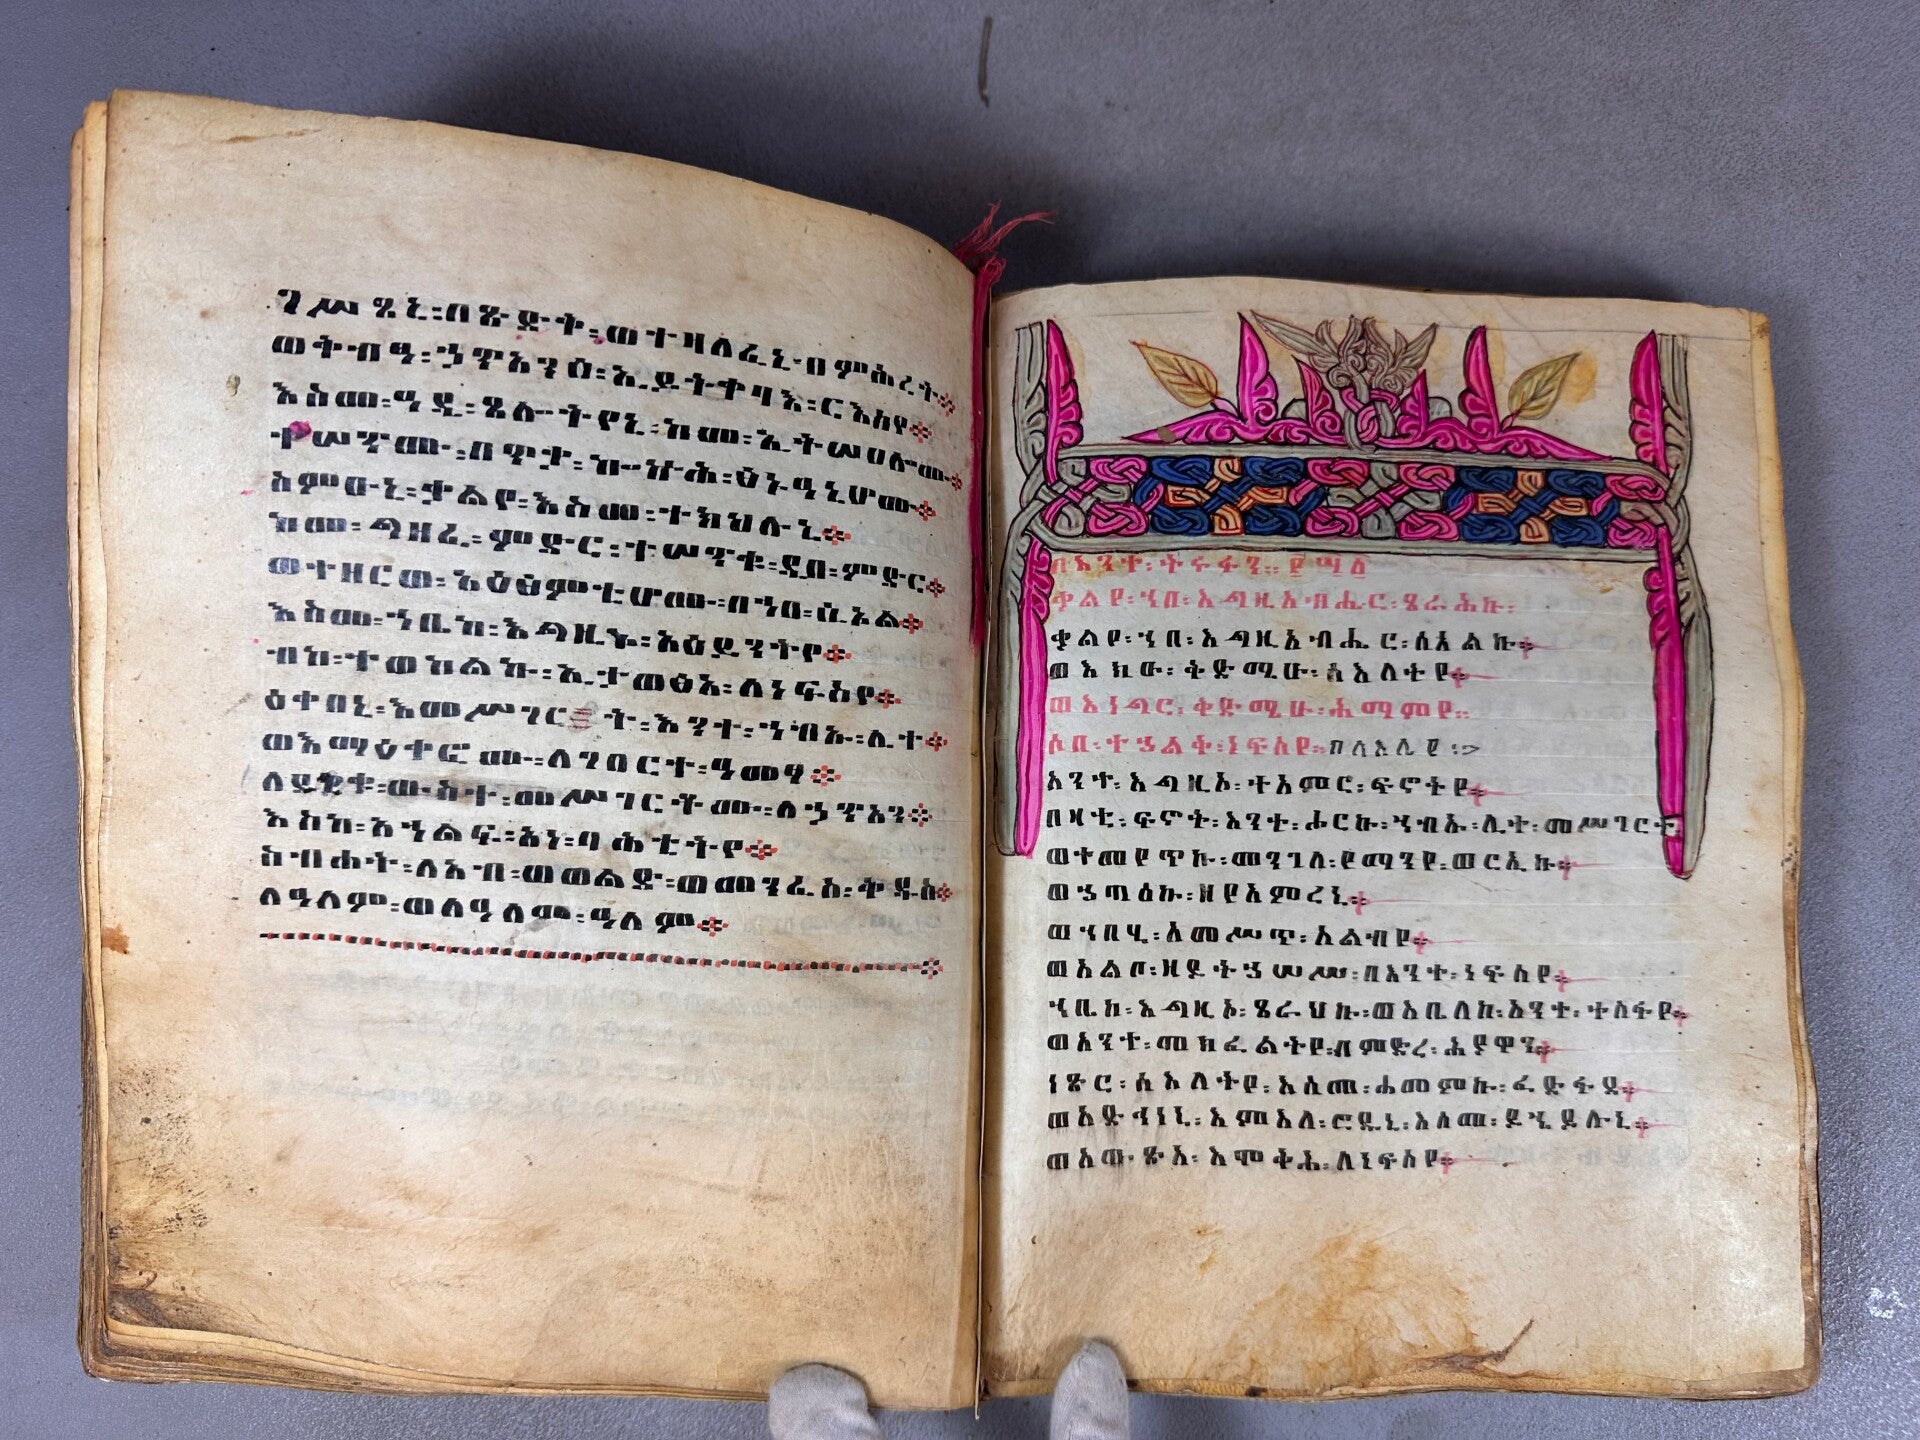 ገሥጸኒ፡በጽድቅ፡ወተዛለፈኒ፡በምሕረት፨
ወቅብዓ፡ኃጥአንሰ፡ኢይትቀባእ፡ርእስየ፨
እስመ፡ዓዲ፡ጸሎትየኒ፡ከመ፡ኢትሠሀሎሙ፨
ተሠጥሙ፡በጥቃ፡ኰኵሕ፡ፅኑዓኒሆሙ፨
ስምዑኒ፡ቃልየ፡እስመ፡ተክህሉኒ፨
ከመ፡ግዘፈ፡ምድር፡ተሠጥቁ፡ዲበ፡ምድር፨
ወተዘርወ፡አዕፅምቲሆሙ፡በኀበ፡ሲኦል፨
እስመ፡ኀቤከ፡እግዚኦ፡አዕይንትየ፨
ብከ፡ተወከልኩ፡ኢታውፅኣ፡ለነፍስየ፨
ዕቀበኒ፡እመሥገርት፡እንተ፡ኀብኡ፡ሊተ፨
ወእማዕቀፎሙ፡ለገበርተ፡ዓመፃ፨
ለይደቁ፡ውስተ፡መሥገርቶሙ፡ለኃጥአን፨
እስከ፡አኀልፍ፡አነ፡ባሕቲትየ፨
ስብሐት፡ለአብ፡ወወልድ፡ወመንፈስ፡ቅዱስ፨
ለዓለም፡ወለዓለመ፡ዓለም፨
በእንተ፡ትሩፋን።
ቃልየ፡ኀበ፡እግዚአብሔር፡ጸራሕኩ፡
ቃልየ፡ኀበ፡እግዚአብሔር፡ሰአልኩ።
ወእክዑ፡ቅድሜሁ፡ስእለትየ።
ወእነግር፡ቅድሜሁ፡ሐማምየ።
ሶበ፡ተኃልቅ፡ነፍስየ።በላእሌየ፡
አንተ፡እግዚኦ፡ተአምር፡ፍኖትየ።
በዛቲ፡ፍኖት፡እንተ፡ሖርኩ፡ኀብኡ፡ሊተ፡መሥገርተ
ወተመየጥኩ፡መንገለ፡የማንየ፡ወርኢኩ።
ወኃጣዕኩ፡ዘየአምረኒ።
ወኀበሂ፡አመሥጥ፡አልብየ።
ወአልቦ፡ዘይትኃሠሥ፡በእንተ፡ነፍስየ።
ኀቤከ፡እግዚኦ፡ጸራህኩ፡ወእቤለከ፡አንተ፡ተስፋየ።
ወአንተ፡መክፈልትየ፡በምድረ፡ሕያዋን።
ነጽር፡ስእለትየ፡እስመ፡ሐመምኩ፡ፈድፋደ።
ወአድኅነኒ፡እምእለ፡ሮዱኒ፡እስመ፡ይኄይሉኒ።
ወአውጽአ፡እሞቅሕ፡ለነፍስየ።